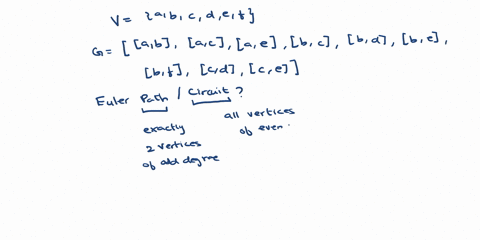 V = {a,b,c,d,e,f}
G = [ [a,b], [a,c], [a,e], [b,c], [b,d], [b,e],
[b,f], [c,d], [c,e] ]
Euler Path / Circuit ?
exactly all vertices
2 vertices of even.
of odd degree